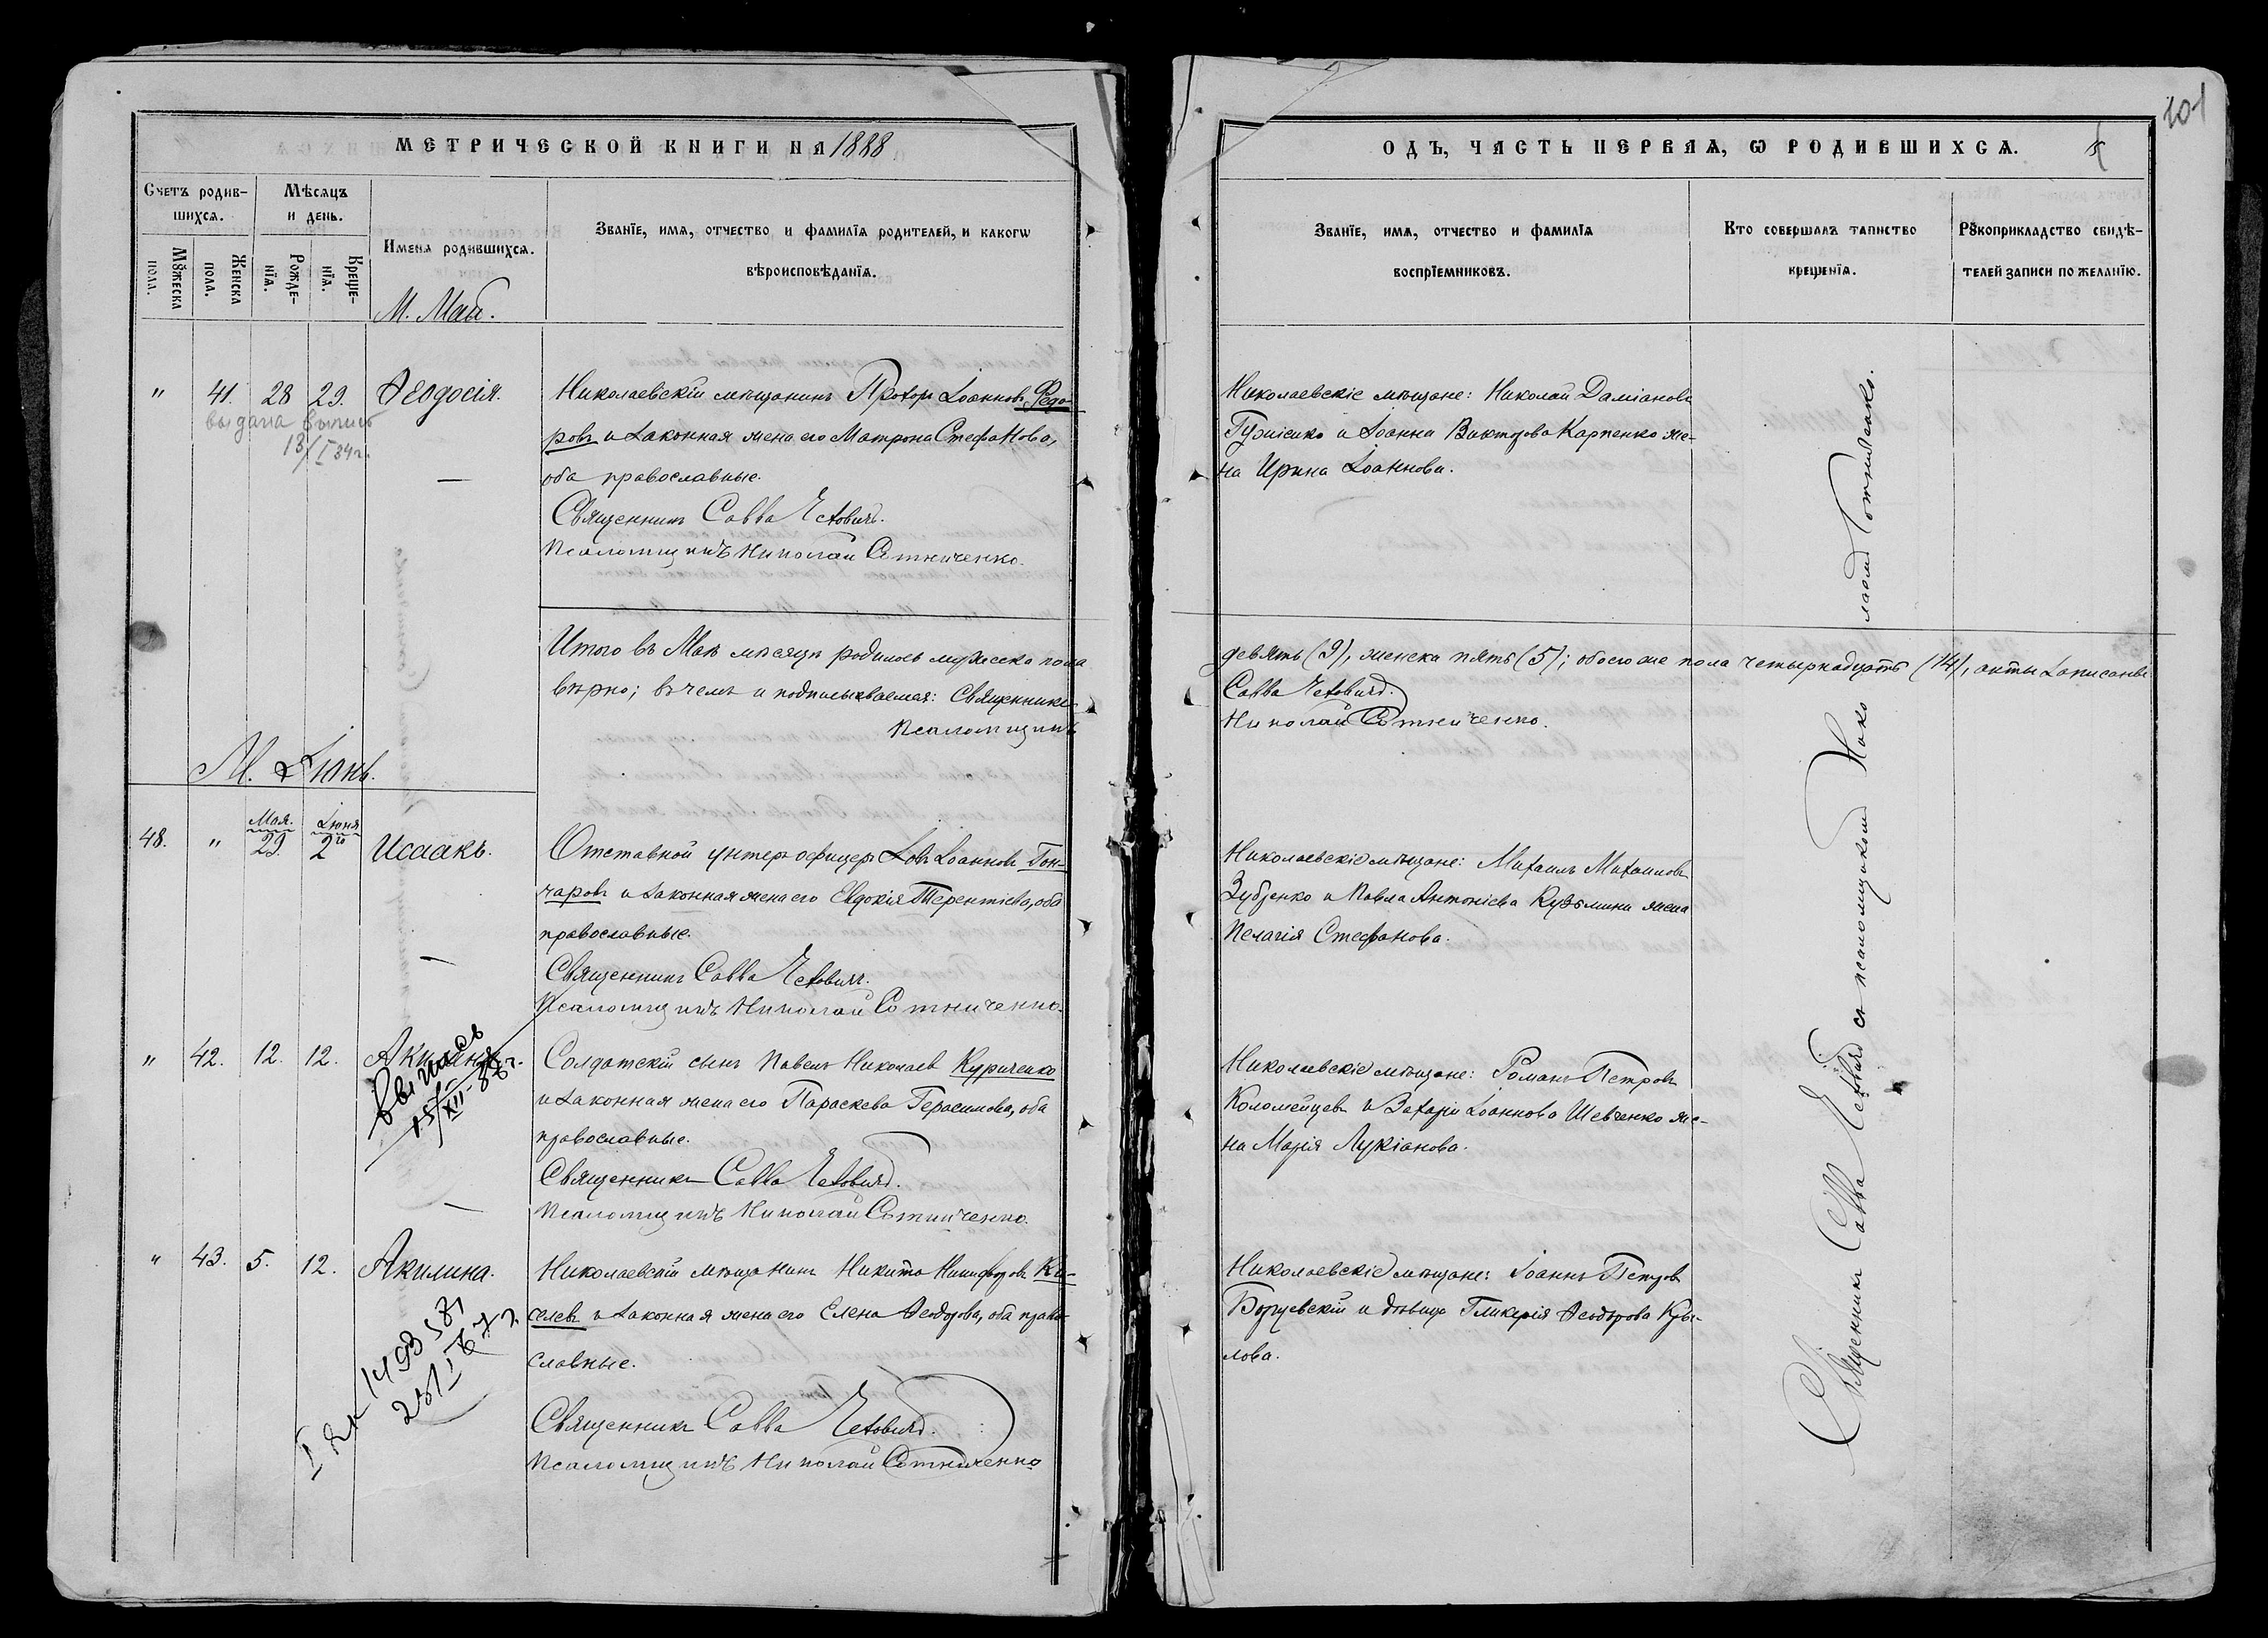 МЕТРИЧЕСКОЙ КНИГИ НА 1888
Счетъ родив-
шихсѧ.
Мѣсѧцъ
и день.
Мꙋжеска
пола.
Женска
пола.
Рожде-
нїѧ.
Креще-
нїѧ.
Имена родившихсѧ.
М. Май.
Званїе, имѧ, отчество и фамилїѧ родителей, и какогѡ
вѣроисповѣданїѧ.
" 41. 28 29. Ѳеодосія.
выдана выпись
13/I 34 г.
Николаевскій мѣщанинъ Прохоръ Іоанновъ Федо-
ровъ и законная жена его Матрона Стефанова,
оба православные.
Священникъ Савва Чехович.
Псаломщикъ Николай Сотниченко.
Итого въ Маѣ мѣсяцѣ родилось мужеска пола
вѣрно; въ чемъ и подписываемся: Священникъ
Псаломщикъ
М. Іюнь.
48. " Мая. 29. Іюня 2го Исаакъ.
Отставной унтеръ офицеръ Іовъ Іоанновъ Гон-
чаровъ и законная жена его Евдокія Терентіева, оба
православные.
Священникъ Савва Чехович.
Псаломщикъ Николай Сотниченко.
" 42. 12. 12. Акилина.
выпись
15/XII-38 г.
Солдатскій сынъ Павелъ Николаевъ Куриченко
и законная жена его Параскева Герасимова, оба
православные.
Священникъ Савва Чехович.
Псаломщикъ Николай Сотниченко.
" 43. 5. 12. Акилина.
Николаевскій мѣщанинъ Никита Никифоровъ Ки-
селевъ и законная жена его Елена Ѳеодорова, оба право-
славные.
Священникъ Савва Чехович.
Псаломщикъ Николай Сотниченко
101
ОДЪ, ЧАСТЬ ПЕРВАѦ, Ѡ РОДИВШИХСѦ.
Званїе, имѧ, отчество и фамилїѧ
воспрїемниковъ.
Кто совершалъ таинство
крещенїѧ.
Рꙋкоприкладство свидѣ-
телей записи по желанїю.
Николаевскіе мѣщане: Николай Даміановъ
и Іоанна Викторова Карпенко же-
на Ирина Іоаннова.
девять (9), женска пять (5); обоего же пола четырнадцать (14), акты записаны
Савва Чехович.
Николай Сотниченко.
Николаевскіе мѣщане: Михаилъ Михаиловъ
Зубченко и Павла Антоніева Кузьмина жена
Пелагія Стефанова.
Николаевскіе мѣщане: Романъ Петровъ
Коломейцевъ и Захарія Іоаннова Шевченко же-
на Марія Лукіанова.
Николаевскіе мѣщане: Іоаннъ Петровъ
и дѣвица Гликерія Ѳеодорова Кры-
лова.
Священникъ Савва Чехович съ псаломщикомъ Николаемъ Сотниченко.